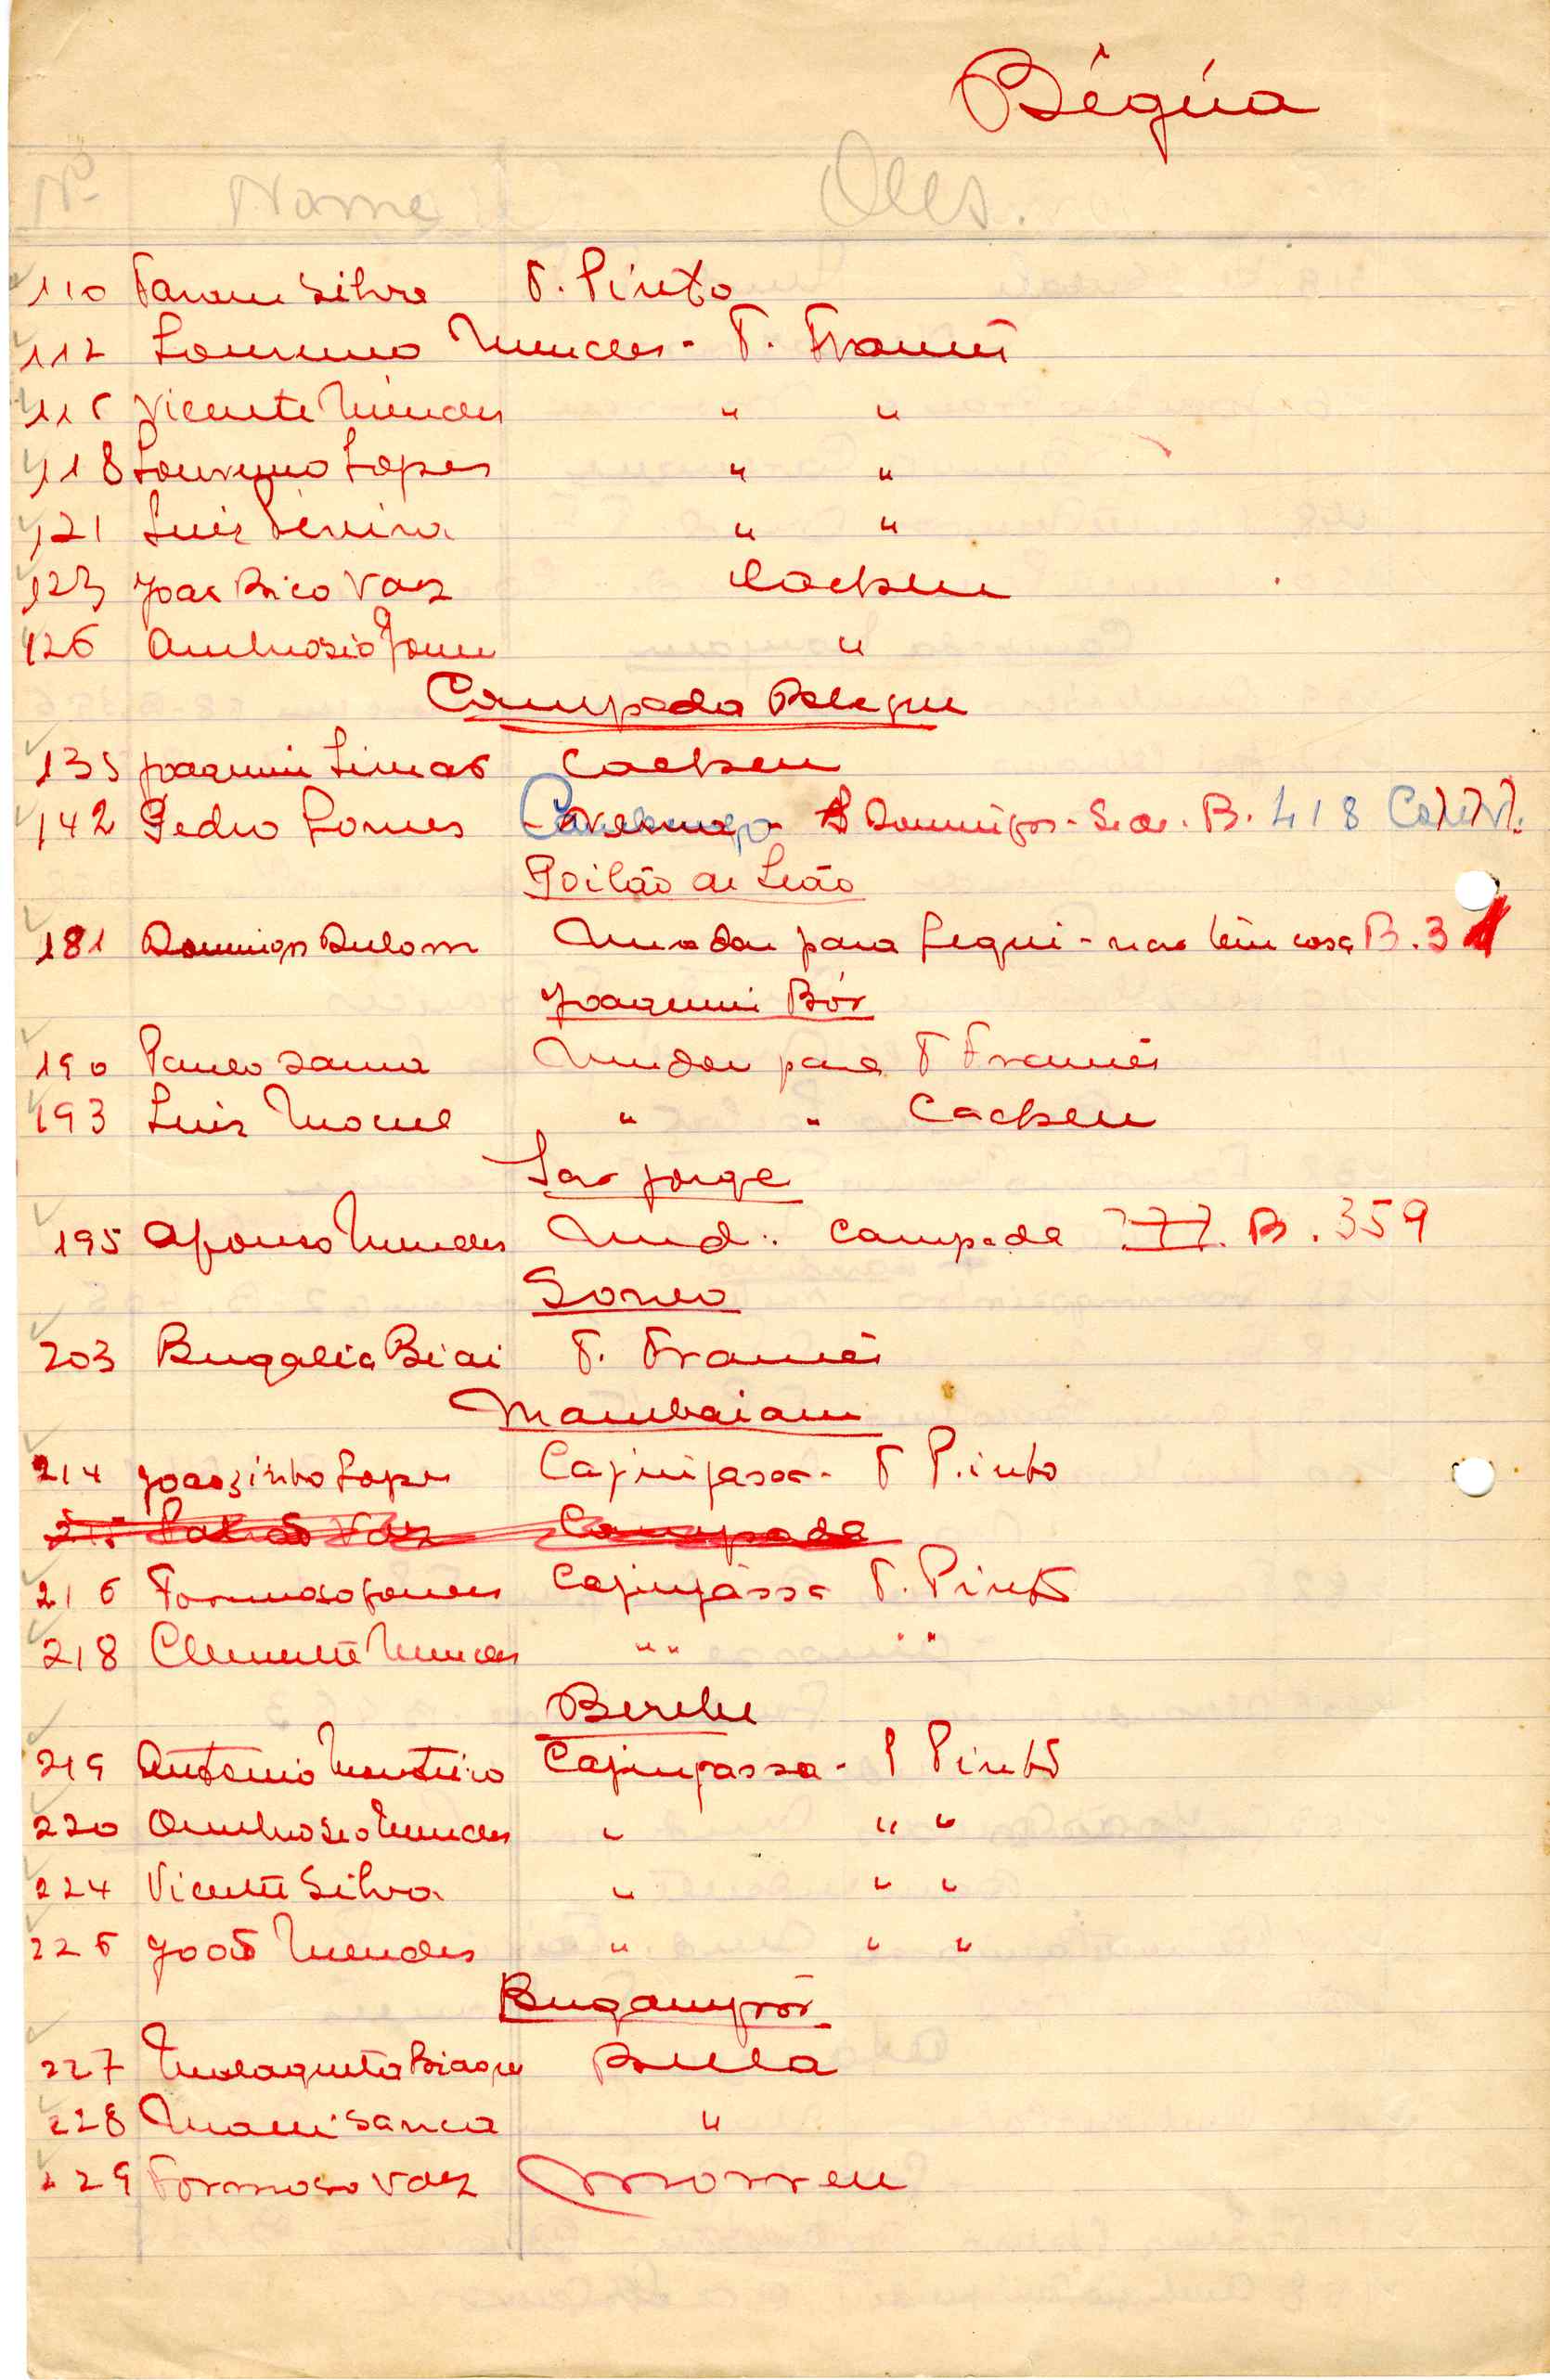 Bégúa
Nº Nome Obs.
110 Silva T. Pinto
112 Lourenço Mendes - T. Francês
116 Vicente Mendes " "
118 Lourenço Lopes " "
121 Luiz Pereira " "
123 João Bico Vaz Cacheu
126 Ambrosio Gomes "
Campada
135 Joaquim Cacheu
142 Pedro Gomes S Domingos - Sede. B. 418
Poilão de Leão
181 Domingos Mudou para Pequi - não têm casa B. 3
Joaquim Bór
190 Paulo Mudou para T Francês
193 Luiz " " Cacheu
São Jorge
195 Afonso Mendes Mud.. Campada 777. B. 359
203 Bugalia Biai T. Francês
Mambaiam
214 Joãozinho Lopes Cajinjassa - T Pinto
215 Vaz Campada
216 Formoso Gomes Cajinjassa T. Pinto
218 Clemente Mendes "" ""
219 Antonio Monteiro Cajinjassa - T Pinto
220 Ambrosio Mendes " " "
224 Vicente Silva " " "
226 João Mendes " " "
Bugampór
227 Bula
228 "
229 Formoso Vaz Morreu